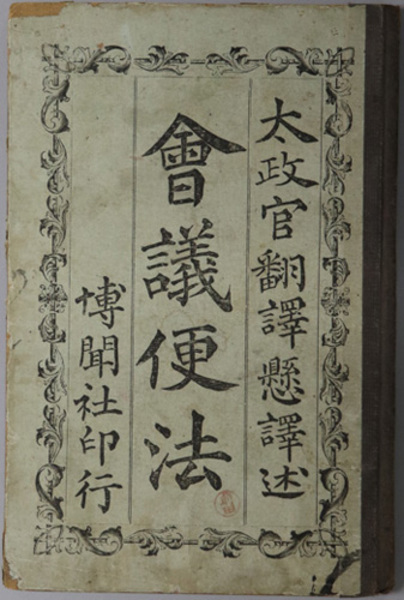 太政官翻譯懸譯述
會議便法
博聞社印行